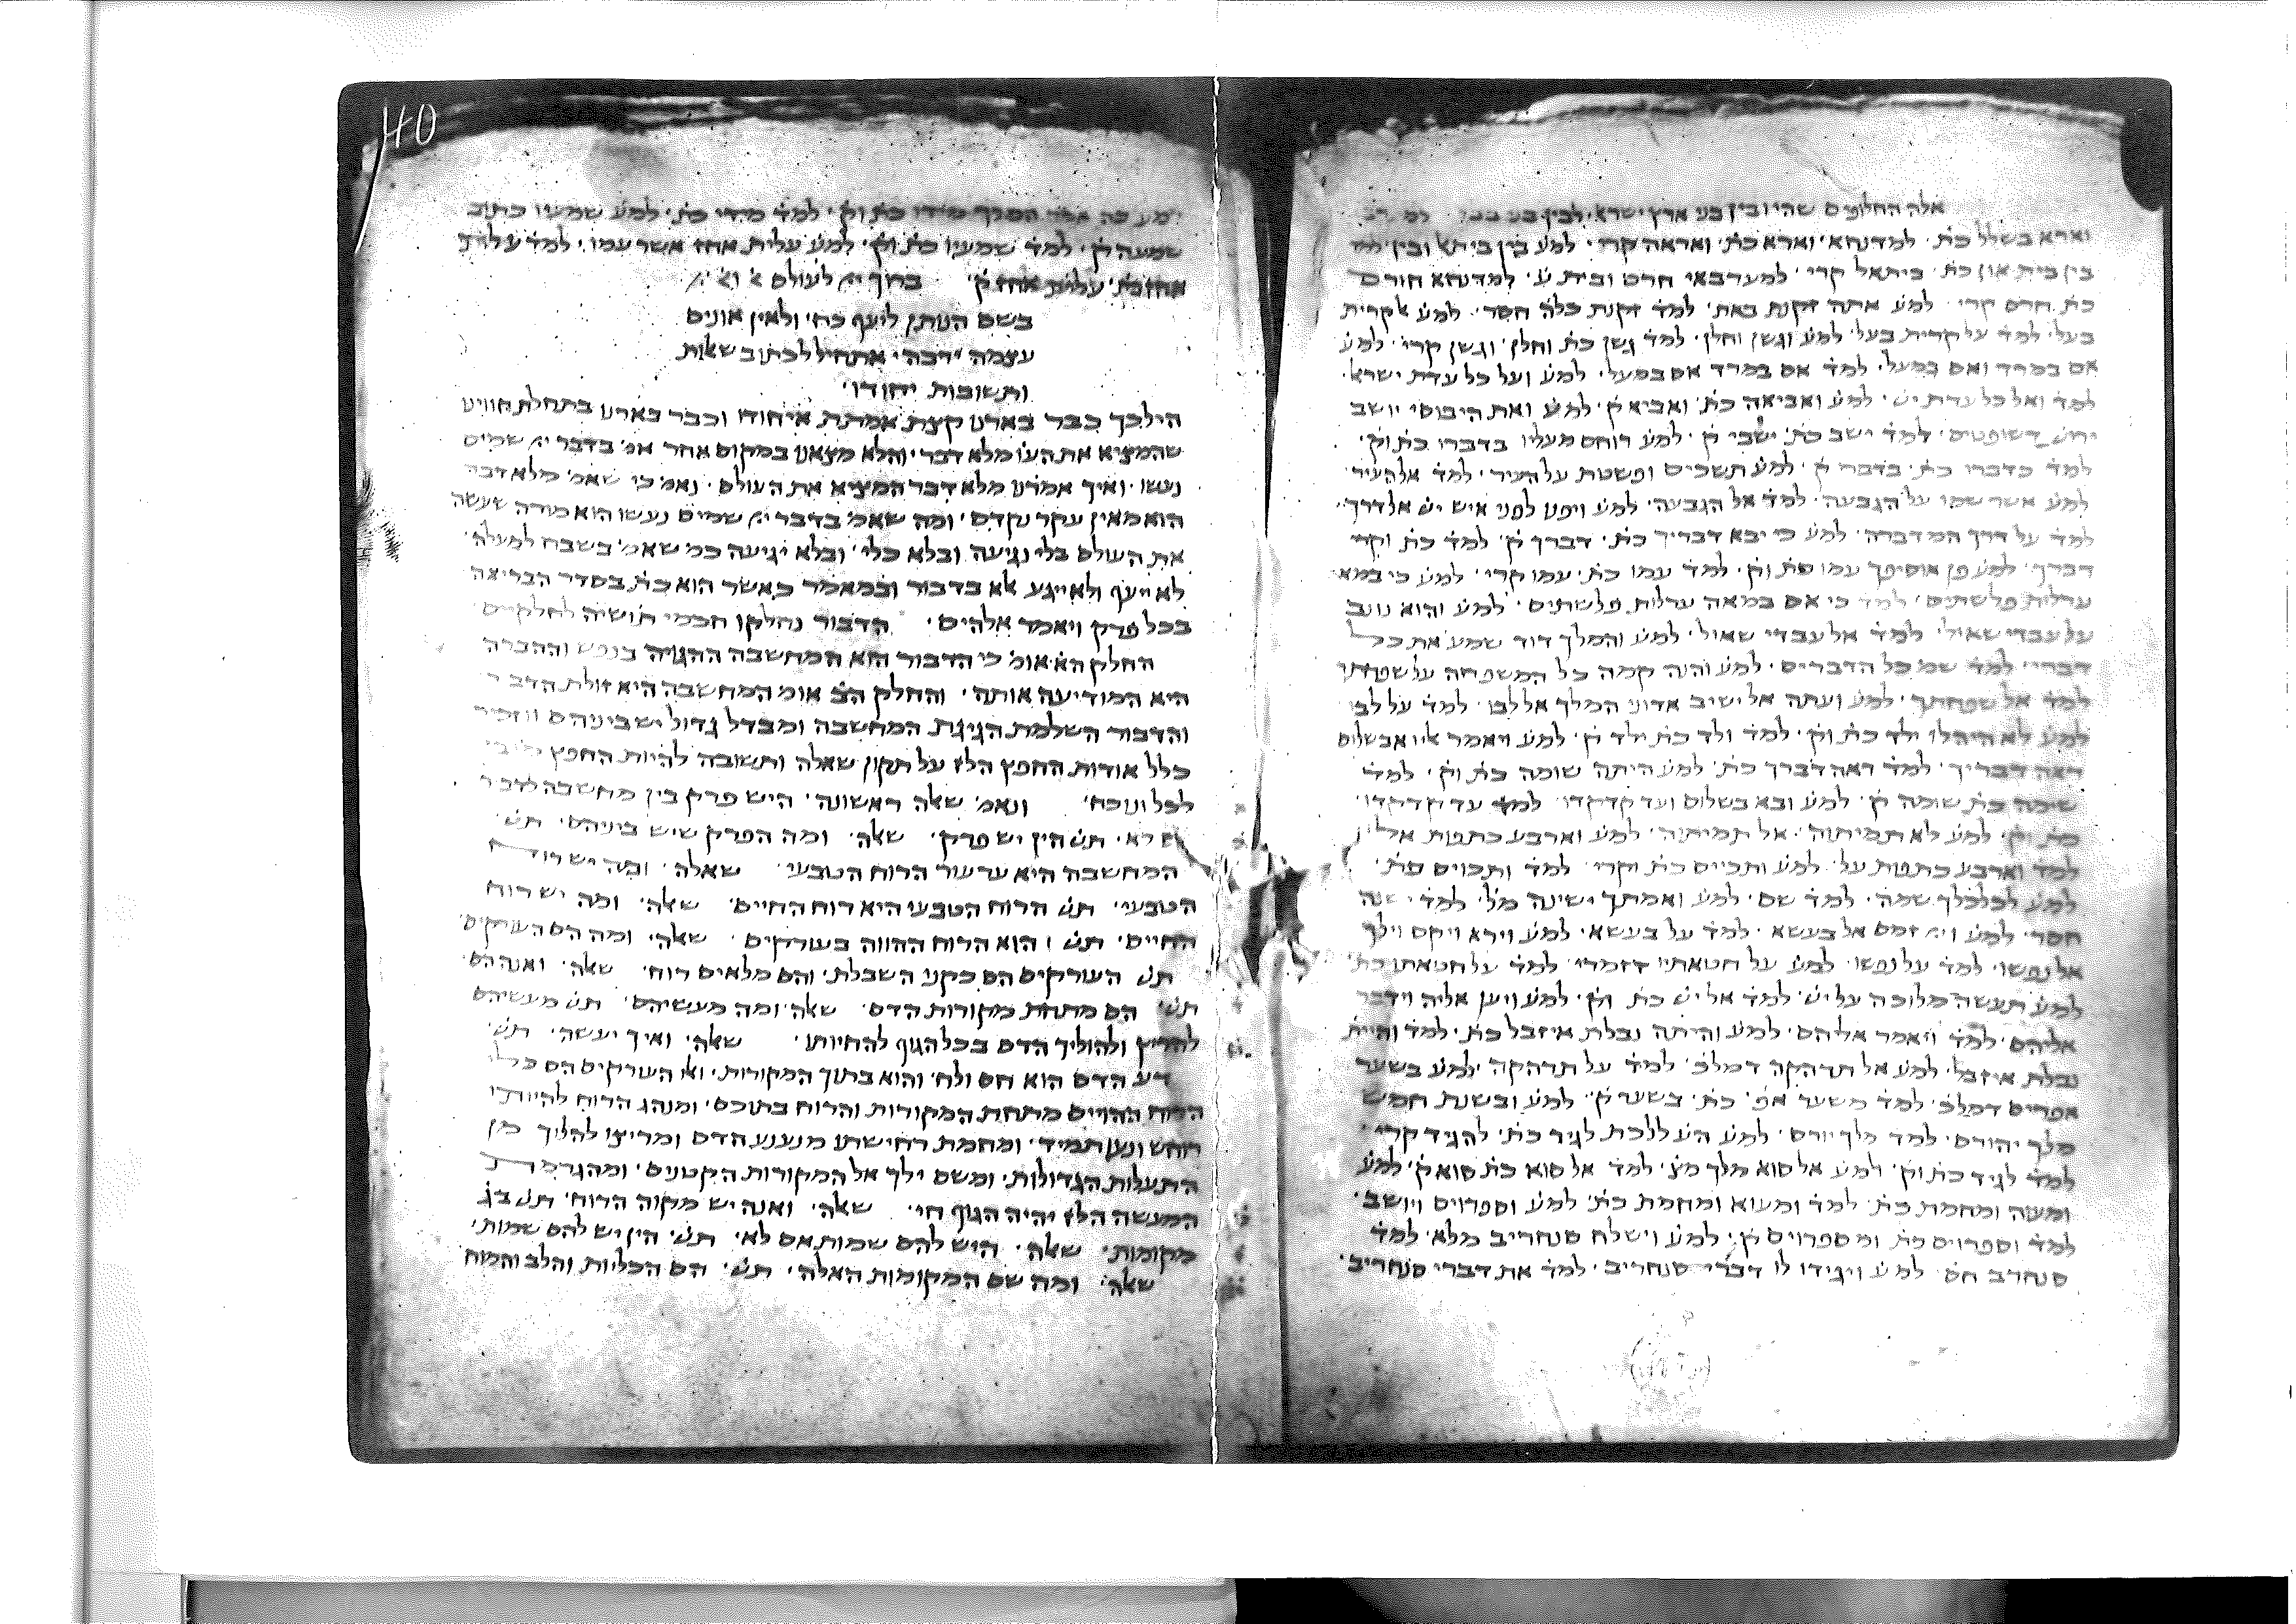 אלה החלופים שהיו בין בני ארץ ישרא׳ לבין בני בבל׳
וארא בשלל כת׳ למדנחא׳ וארא כת׳ ואראה קרי׳ למע׳ בין בית אל ובין
בין בית און כת׳ ביתאל קרי׳ למערבאי חרס ובית ע׳ למדנחא חורס
כת׳ חרס קרי׳ למע׳ אתה זקנת באת׳ למד׳ זקנת כלה חסר׳ למע׳ אל קרית
בעל׳ למד׳ על קרית בעל׳ למע׳ וגשן וחלון׳ למד׳ גשן כת׳ וחלון׳ וגשן קרי׳ למע׳
אם במרד ואם במעל׳ למד׳ אם במרד אם במעל׳ למע׳ ועל כל עדת ישרא׳
למד׳ ואל כל עדת יש׳ למע׳ ואביאה כת׳ ואביא ק׳ למע׳ ואת היבוסי יושב
ירוש׳ דשופטים׳ למד׳ ישב כת׳ ישבי ק׳ למע׳ רוחם מעליו בדברו כת׳ וק׳
למד׳ כדברו כת׳ בדברו ק׳ למע׳ תשכים ופשטת על העיר׳ למד׳ אל העיר׳
למע׳ אשר שמו על הגבעה׳ למד׳ אל הגבעה׳ למע׳ ויפנו לפני איש יש׳ אל דרך׳
למד׳ על דרך המדברה׳ למע׳ כי יבא דבריך כת׳ דברך ק׳ למד׳ כת׳ וקרי
דברך׳ למע׳ פן אוסיפך עמו כת׳ וק׳ למד׳ עמו כת׳ עמו קרי׳ למע׳ כי במאה
ערלות פלשתים׳ למד׳ כי אם במאה ערלות פלשתים׳ למע׳ והוא נצב
על עבדי שאול׳ למד׳ אל עבדי שאול׳ למע׳ והמלך דוד שמע את כל
דברי׳ למד׳ שמ׳ כל הדברים׳ למע׳ והנה קמה כל המשפחה על שפחתך
למד׳ אל שפחתך׳ למע׳ ועתה אל ישיב אדוני המלך אל לבו׳ למד׳ על לבו
למע׳ לא היה לו ילד כת׳ וק׳ למד׳ ולד כת׳ ילד ק׳ למע׳ ויאמר אליו אבשלום
ראה דבריך׳ למד׳ ראה דברך כת׳ למע׳ היתה שומה כת׳ וק׳ למד׳
שימה כת׳ שומה ק׳ למע׳ ובא בשלום ועד קדקדו׳ למד׳ עד קדקדו׳
כת׳ וק׳ למע׳ לא תמיתוה׳ אל תמיתוה׳ למע׳ וארבע כתפות אל
למד׳ וארבע כתפות על׳ למע׳ ותכיים כת׳ וקרי׳ למד׳ ותכוים כת׳
למע׳ לכלכלך שמה׳ למד׳ שם׳ למע׳ ואמתך ישינה מל׳ למד׳ ישנה
חסר׳ למע׳ זמם אל בעשא׳ למד׳ על בעשא׳ למע׳ וירא ויקם וילך
אל נפשו׳ למד׳ על נפשו׳ למע׳ על חטאתיו דזמרי׳ למד׳ על חטאתו כת׳
למע׳ תעשה מלוכה על יש׳ למד׳ אל יש׳ כת׳ וק׳ למע׳ ויען אליה וידבר
אליהם׳ למד׳ ויאמר אליהם׳ למע׳ והיתה נבלת איזבל כת׳ למד׳ והיית
נבלת איזבל׳ למע׳ אל תרהקה דמלכ׳ למד׳ על תרהקה׳ למע׳ בשער
אפרים דמלכ׳ למד׳ משער אפ׳ כת׳ בשער ק׳ למע׳ ובשנת חמש
מלך יהורם׳ למד׳ מלך יורם׳ למע׳ הע׳ ללכת לגיד כת׳ להגיד קרי׳
למד׳ לגיד כת׳ וק׳ למע׳ אל סוא מלך מצ׳ למד׳ אל סוא כת׳ סוא ק׳ למע׳
ומעוה ומחמת כת׳ למד׳ ומעוא ומחמת כת׳ למע׳ וספרוים ויושב׳
למד׳ וספרוים כת׳ ומספרוים ק׳ למע׳ וישלח סנחריב מלא׳ למד׳
סנחרב חס׳ למע׳ ויגידו לו דברי סנחריב׳ למד׳ את דברי סנחריב׳
למע׳ כה אמר המלך מידו כת׳ וק׳ למד׳ מידי כת׳ למע׳ שמעיו כתוב
שמעה ק׳ למד׳ שמעיו כת׳ וק׳ למע׳ עלית אחז אשר עמו׳ למד׳ עלות
אחז כת׳ עלית אחז ק׳ ברוך יי׳ לעולם א׳ וא׳
בשם הנותן ליעף כח׳ ולאין אונים
עצמה ירבה׳ אתחיל לכתוב שאלות
ותשובות יחודו׳
הילכך כבר בארנו קצת אמתת איחודו וכבר בארנו בתחלת חווינו
שהמציא את העו׳ מלא דבר׳ והלא מצאנו במקום אחר אמ׳ בדבר יי׳ שמים
נעשו׳ ואיך אמרנו מלא דבר המציא את העולם׳ נאמ׳ כי שאמ׳ מלא דבר
הוא מאין עקר נקדם׳ ומה שאמ׳ בדבר יי׳ שמים נעשו הוא מורה שעשה
את העולם בלי נגיעה ובלא כלי׳ ובלא יגיעה כמ׳ שאמ׳ בשבח למעלה׳
לא ייעף ולא ייגע אלא בדבור ובמאמר כאשר הוא כת׳ בסדר הבריאה
בכל פרק ויאמר אלהים׳ הדבור נחלקו חכמי תושיה לחלקים
החלק הא׳ אומ׳ כי הדבור הוא המחשבה ההגויה בנפש וההברה
היא המודיעה אותה׳ והחלק הב׳ אומ׳ המחשבה היא זולת הדבור
והדבור השלמת הגיגת המחשבה ומבדל גדול יש ביניהם ונזכיר
כלל אודות החפץ הלז על תקון שאלה ותשובה להיות החפץ
לכל ונוכח׳ ונאמ׳ שאלה ראשונה׳ היש פרק בין מחשבה לדבור
אם לא׳ תש׳ הין יש פרק׳ שאלה׳ ומה הפרק שיש ביניהם׳ תש׳
המחשבה היא ערעור הרוח הטבעי׳ שאלה׳ ומה יש רוח
הטבעי׳ תש׳ הרוח הטבעי היא רוח החיים׳ שאלה׳ ומה יש רוח
החיים׳ תש׳ הוא הרוח ההווה בעורקים׳ שאלה׳ ומה הם העורקים׳
תש׳ העורקים הם כקני השבלת׳ והם מלאים רוח׳ שאלה׳ ואנה הם׳
תש׳ הם מתחת מקורות הדם׳ שאלה׳ ומה מעשיהם׳ תש׳ מעשיהם
להריץ ולהוליך הדם בכל הגוף להחיותו׳ שאלה׳ ואיך יעשה׳ תש׳
דע הדם הוא חם ולח׳ והוא בתוך המקורות׳ ואלו העורקים הם כלי
הרוח ההויים מתחת המקורות והרוח בתוכם׳ ומנהג הרוח להיותו
רוחש ונע תמיד׳ ומחמת רחישתו מנענע הדם ומריצו להליך מן
התעלות הגדולות׳ ומשם ילך אל המקורות הקטנים׳ ומהגרמת
המעשה הלז יהיה הגוף חי׳ שאלה׳ ואנה יש מקוה הרוח׳ תש׳ בג׳
מקומות׳ שאלה׳ היש להם שמות אם לא׳ תש׳ הין יש להם שמות׳
שאלה׳ ומה שם המקומות האלה׳ תש׳ הם הכליות והלב והמוח
40